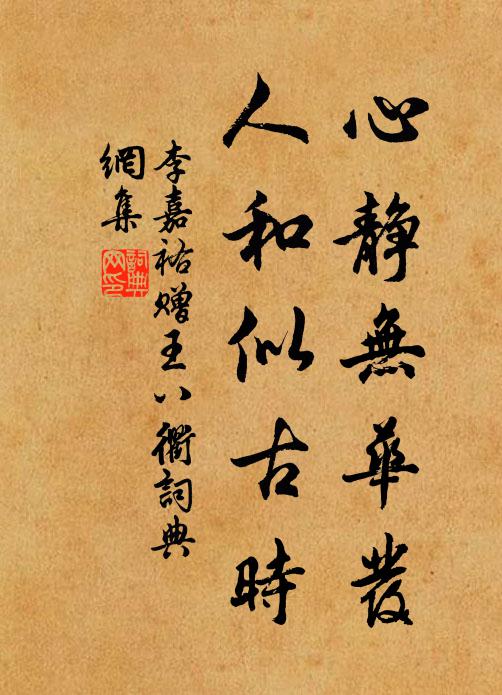 心靜無華發
人和似古時
李嘉祐贈王八衢詞典
網集
詞典
网印